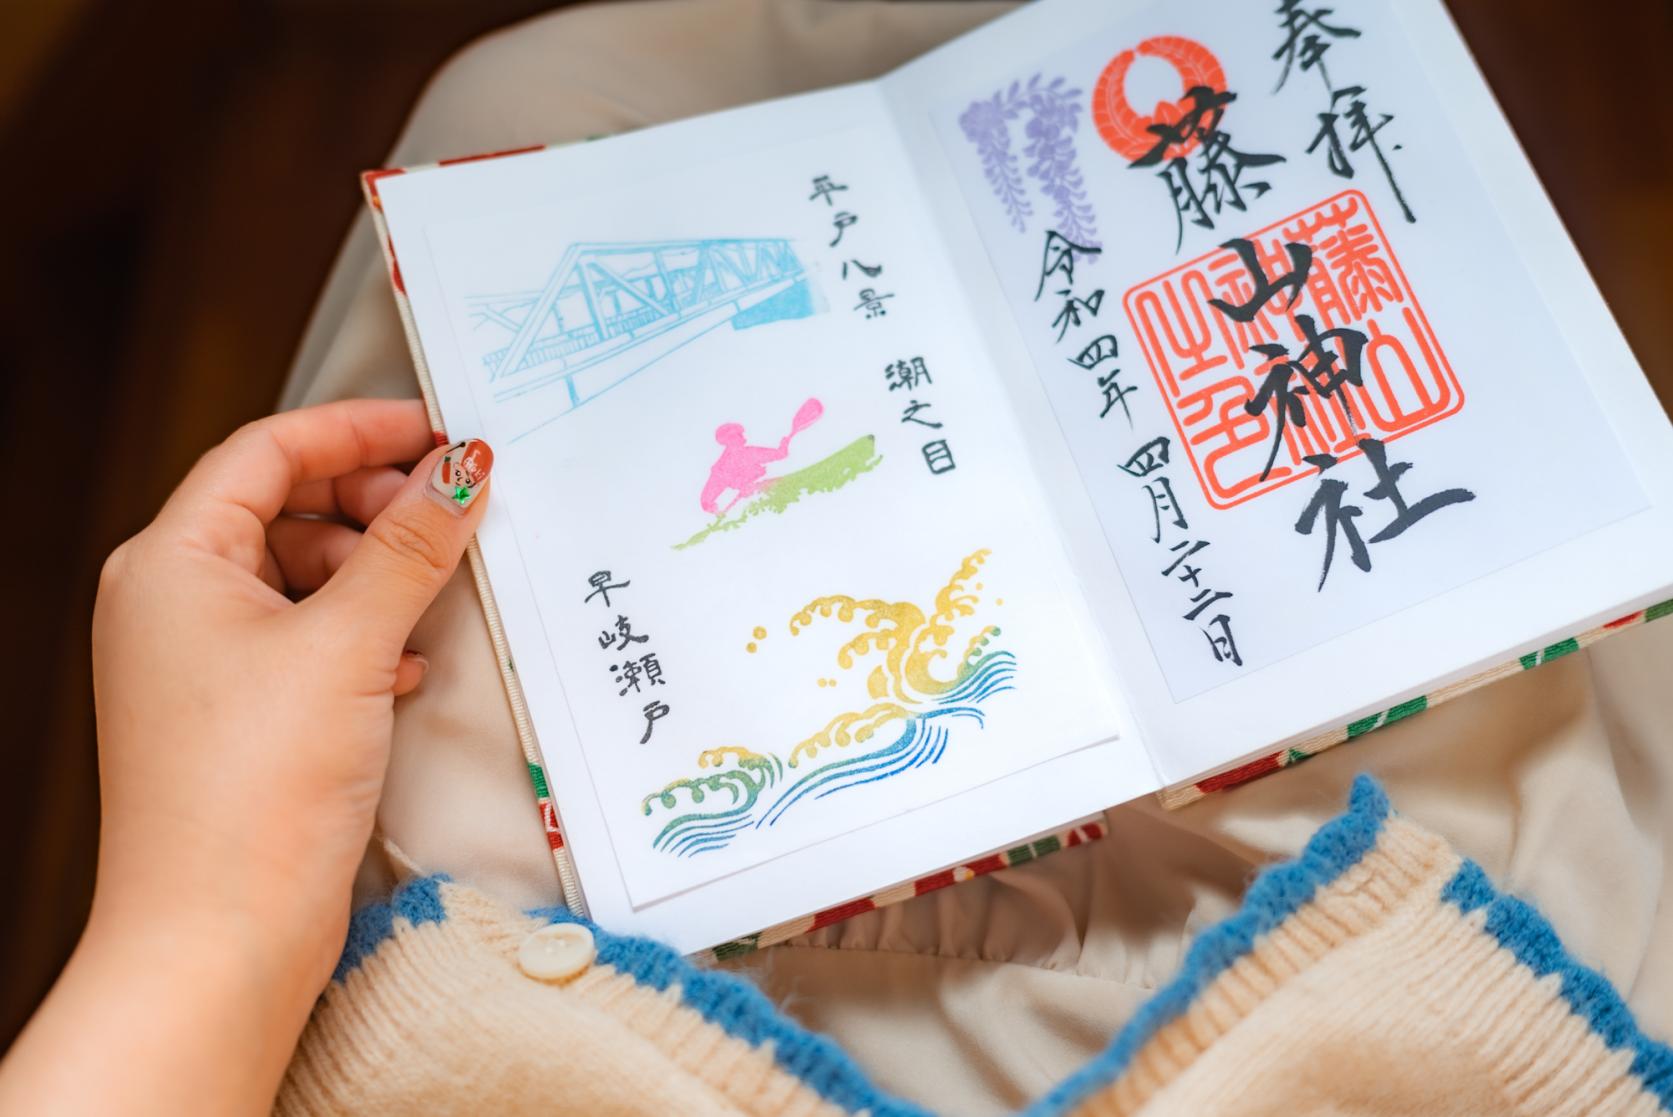 奉拝
藤山神社
藤山神社之印
令和四年 四月二十二日
平戸八景 潮之目
早岐瀬戸